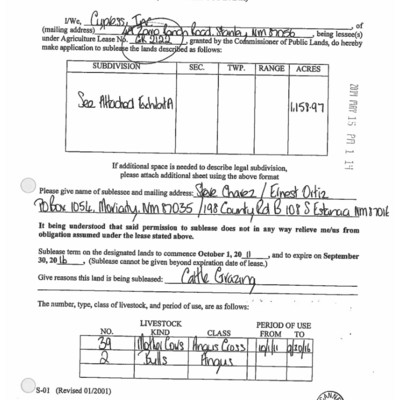 I/We, Cypress, Inc, of
(mailing address) Zorro Ranch Road, Stanley, NM 87056, being lessee(s)
under Agriculture Lease No. GR 2122, granted by the Commissioner of Public Lands, do hereby
make application to sublease the lands described as follows:
SUBDIVISION SEC. TWP. RANGE ACRES
See Attached Exhibit A 1,158.97
2011 MAY 15 PM 1 14
If additional space is needed to describe legal subdivision,
please attach additional sheet using the above format
Please give name of sublessee and mailing address: Steve Chavez / Ernest Ortiz
PO box 1054, Moriarity, Nm 87035 / 198 County Rd B 108 S Estancia Nm 87016
It being understood that said permission to sublease does not in any way relieve me/us from
obligation assumed under the lease stated above.
Sublease term on the designated lands to commence October 1, 20 11, and to expire on September
30, 20 16, (Sublease cannot be given beyond expiration date of lease.)
Give reasons this land is being subleased: Cattle Grazing
The number, type, class of livestock, and period of use, are as follows:
LIVESTOCK PERIOD OF USE
NO. KIND CLASS FROM TO
39 Mother Cows Angus Cross 10/1/11 9/30/16
2 Bulls Angus
S-01 (Revised 01/2001)